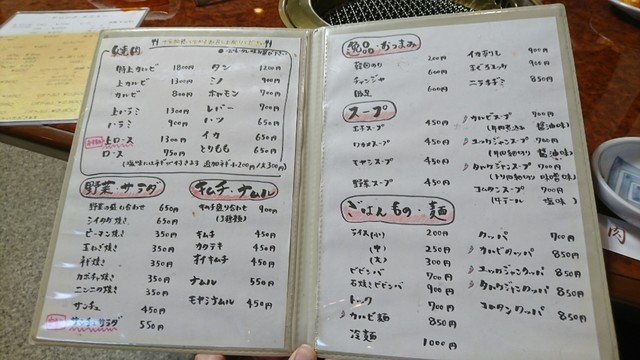 焼肉
特上カルビ 1800円
上カルビ 1300円
カルビ 800円
上ハラミ 1300円
ハラミ 900円
上ロース 1300円
ロース 950円
タン 1200円
ミノ 900円
ホルモン 700円
レバー 700円
ハツ 650円
イカ 650円
とりもも 650円
野菜・サラダ
野菜の盛り合わせ 650円
シイタケ焼き 650円
ピーマン焼き 350円
玉ねぎ焼き 350円
ネギ焼き 350円
カボチャ焼き 350円
ニンニク焼き 350円
サンチュ 450円
サンチュサラダ 550円
キムチ・ナムル
キムチ盛り合わせ 900円
(3種類)
キムチ 450円
カクテキ 450円
オイキムチ 450円
ナムル 550円
モヤシナムル 450円
逸品・おつまみ
韓国のり 200円
チャンジャ 600円
豚足 600円
イカ刺し 900円
まぐろユッケ 900円
ニラチヂミ 850円
スープ
玉子スープ 450円
ワカメスープ 450円
モヤシスープ 450円
野菜スープ 450円
カルビスープ 900円
醤油味)
ユッケジャンスープ 700円
醤油味)
タッケジャンスープ 700円
コムタンスープ 700円
(牛テール 塩味)
ごはんもの・麺
ライス(小) 200円
(中) 250円
(大) 300円
ビビンバ 700円
石焼きビビンバ 900円
トック 700円
カルビ麺 850円
冷麺 1000円
クッパ 700円
カルビクッパ 850円
ユッケジャンクッパ 850円
タッケジャンクッパ 850円
コムタンクッパ 850円
肉